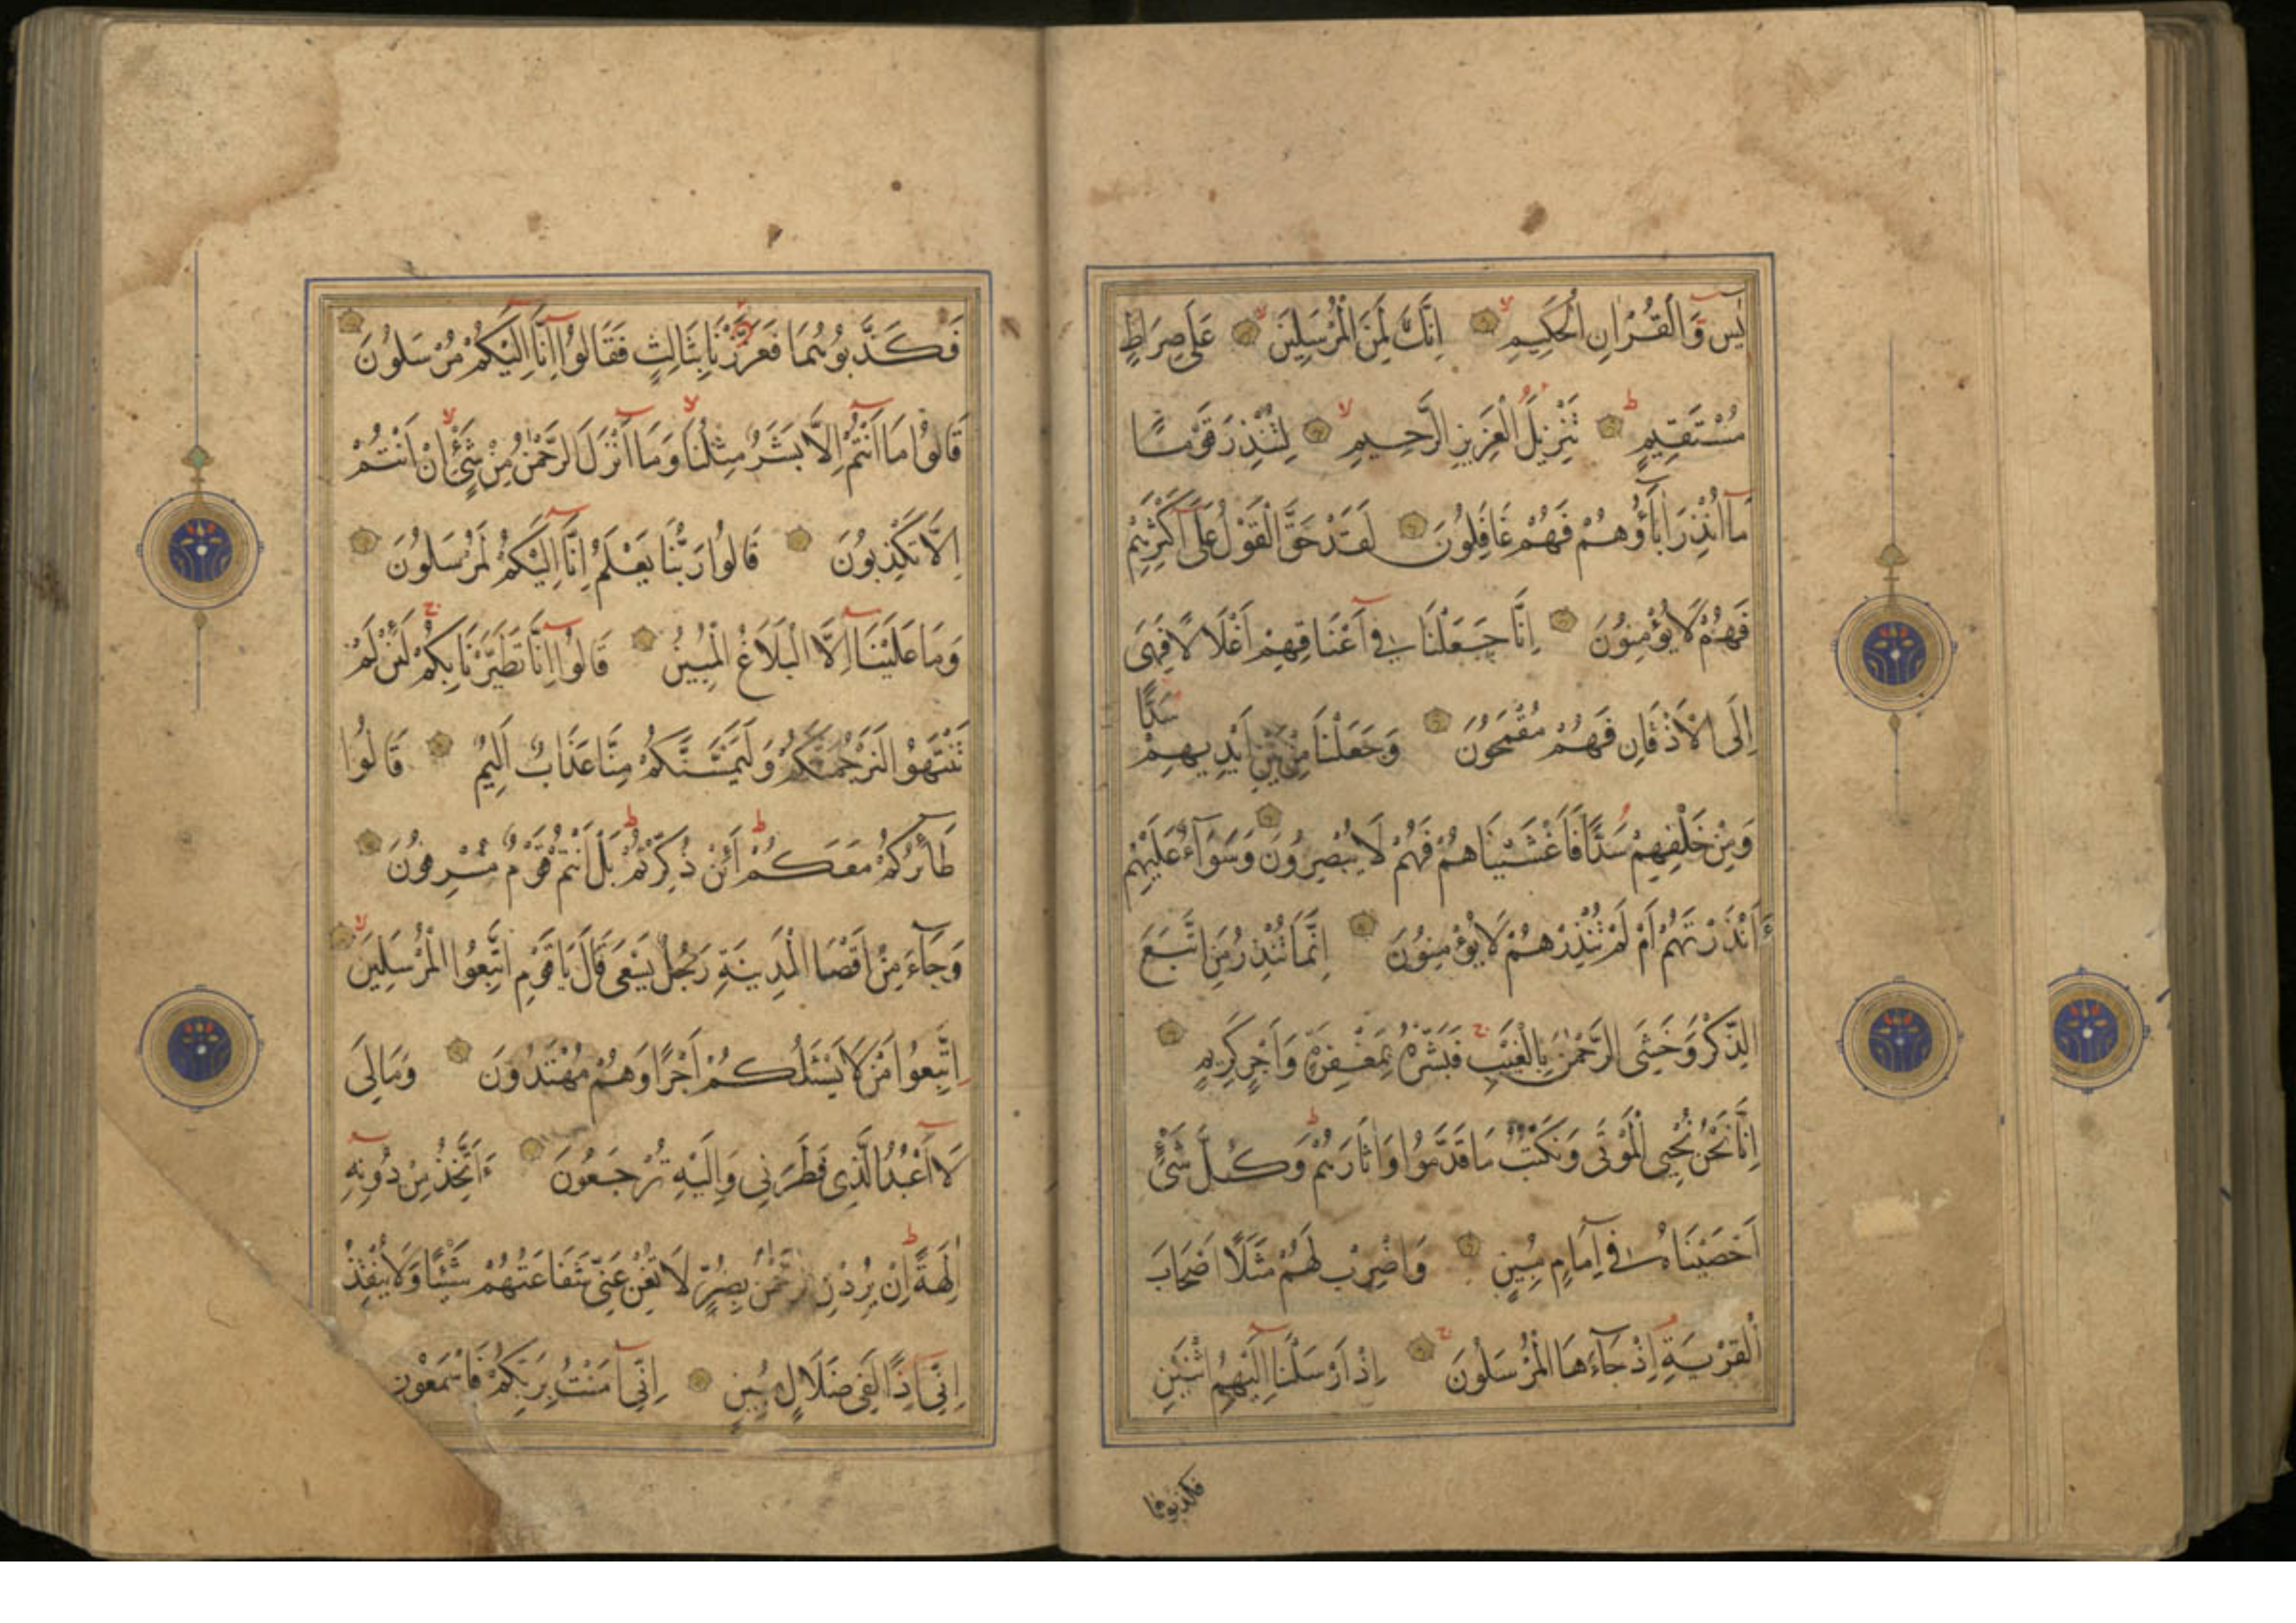 يٰس وَالْقُرْاٰنِ الْحَكِيمِ اِنَّكَ لَمِنَ الْمُرْسَلِينَ عَلَى صِرَاطٍ
مُسْتَقِيمٍ تَنْزِيلَ الْعَزِيزِ الرَّحِيمِ لِتُنْذِرَ قَوْمًا
مَا اُنْذِرَ اٰبَاؤُهُمْ فَهُمْ غَافِلُونَ لَقَدْ حَقَّ الْقَوْلُ عَلَى اَكْثَرِهِمْ
فَهُمْ لَا يُؤْمِنُونَ اِنَّا جَعَلْنَا فِي اَعْنَاقِهِمْ اَغْلَالًا فَهِىَ
اِلَى الْاَذْقَانِ فَهُمْ مُقْمَحُونَ وَجَعَلْنَا مِنْ بَيْنِ اَيْدِيهِمْ سَدًّا
وَمِنْ خَلْفِهِمْ سَدًّا فَاَغْشَيْنَاهُمْ فَهُمْ لَا يُبْصِرُونَ وَسَوَآءٌ عَلَيْهِمْ
ءَاَنْذَرْتَهُمْ اَمْ لَمْ تُنْذِرْهُمْ لَا يُؤْمِنُونَ اِنَّمَا تُنْذِرُ مَنِ اتَّبَعَ
الذِّكْرَ وَخَشِىَ الرَّحْمٰنَ بِالْغَيْبِ فَبَشِّرْهُ بِمَغْفِرَةٍ وَاَجْرٍ كَرِيمٍ
اِنَّا نَحْنُ نُحْيِى الْمَوْتَى وَنَكْتُبُ مَا قَدَّمُوا وَاٰثَارَهُمْ وَكُلَّ شَىْءٍ
اَحْصَيْنَاهُ فِي اِمَامٍ مُبِينٍ وَاضْرِبْ لَهُمْ مَثَلًا اَصْحَابَ
الْقَرْيَةِ اِذْ جَآءَهَا الْمُرْسَلُونَ اِذْ اَرْسَلْنَا اِلَيْهِمُ اثْنَيْنِ
فَكَذَّبُوهُمَا فَعَزَّزْنَا بِثَالِثٍ فَقَالُوا اِنَّا اِلَيْكُمْ مُرْسَلُونَ
قَالُوا مَا اَنْتُمْ اِلَّا بَشَرٌ مِثْلُنَا وَمَا اَنْزَلَ الرَّحْمٰنُ مِنْ شَىْءٍ اِنْ اَنْتُمْ
اِلَّا تَكْذِبُونَ قَالُوا رَبُّنَا يَعْلَمُ اِنَّا اِلَيْكُمْ لَمُرْسَلُونَ
وَمَا عَلَيْنَا اِلَّا الْبَلَاغُ الْمُبِينُ قَالُوا اِنَّا تَطَيَّرْنَا بِكُمْ لَئِنْ لَمْ
تَنْتَهُوا لَنَرْجُمَنَّكُمْ وَلَيَمَسَّنَّكُمْ مِنَّا عَذَابٌ اَلِيمٌ قَالُوا
طَائِرُكُمْ مَعَكُمْ اَئِنْ ذُكِّرْتُمْ بَلْ اَنْتُمْ قَوْمٌ مُسْرِفُونَ
وَجَآءَ مِنْ اَقْصَا الْمَدِينَةِ رَجُلٌ يَسْعَى قَالَ يَا قَوْمِ اتَّبِعُوا الْمُرْسَلِينَ
اِتَّبِعُوا مَنْ لَا يَسْئَلُكُمْ اَجْرًا وَهُمْ مُهْتَدُونَ وَمَا لِىَ
لَا اَعْبُدُ الَّذِى فَطَرَنِى وَاِلَيْهِ تُرْجَعُونَ ءَاَتَّخِذُ مِنْ دُونِهِ
اٰلِهَةً اِنْ يُرِدْنِ الرَّحْمٰنُ بِضُرٍّ لَا تُغْنِ عَنِّى شَفَاعَتُهُمْ شَيْئًا وَلَا يُنْقِذُ
اِنِّى اِذًا لَفِى ضَلَالٍ مُبِينٍ اِنِّى اٰمَنْتُ بِرَبِّكُمْ فَاسْمَعُونِ